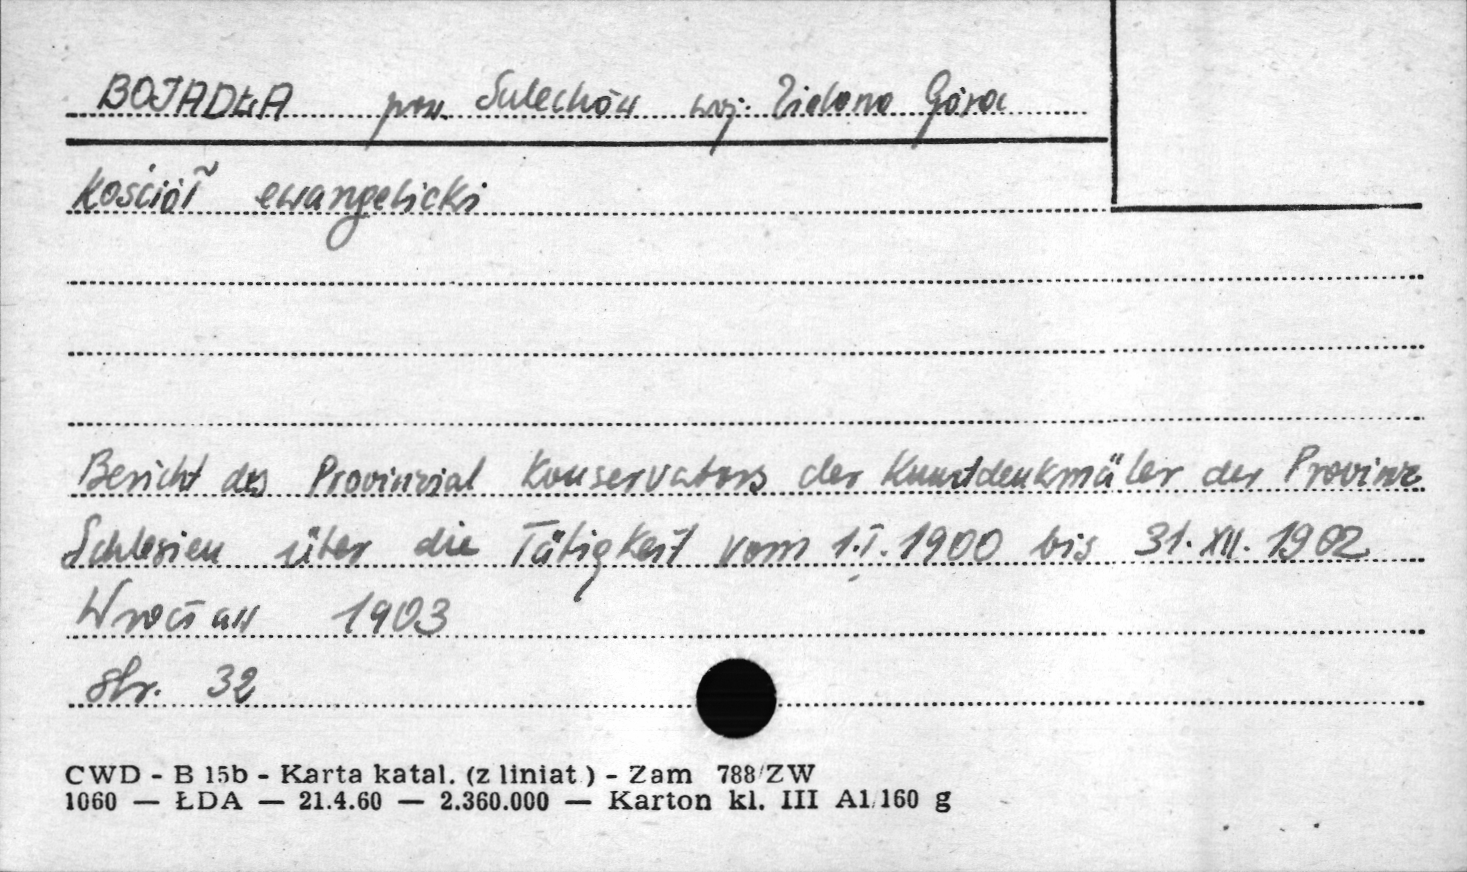 BOJADŁA pow. Sulechów woj. Zielona Góra
Kościół ewangelicki
Bericht des Provinzial Konservators der Kunstdenkmäler der Provinz
Schlesien über die Tätigkeit vom 1.I.1900 bis 31.XII.1902
Wrocław 1903
str. 32
CWD - B 15b - Karta katal. (z liniat.) - Zam 788/ZW
1060 — ŁDA — 21.4.60 — 2.360.000 — Karton kl. III A1/160 g